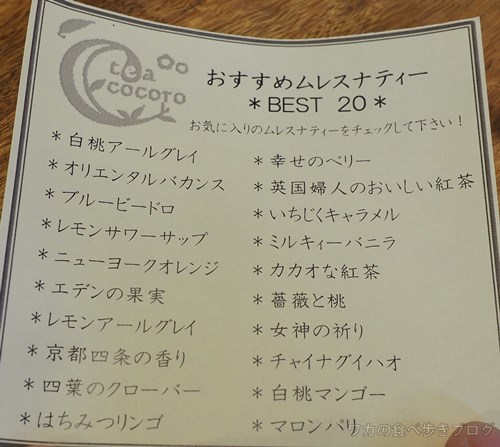 tea
cocoto
おすすめムレスナティー
*BEST 20*
お気に入りのムレスナティーをチェックして下さい！
*白桃アールグレイ
*オリエンタルバカンス
*ブルービードロ
*レモンサワーサップ
*ニューヨークオレンジ
*エデンの果実
*レモンアールグレイ
*京都四条の香り
*四葉のクローバー
*はちみつリンゴ
*幸せのベリー
*英国婦人のおいしい紅茶
*いちじくキャラメル
*ミルキィーバニラ
*カカオな紅茶
*薔薇と桃
*女神の祈り
*チャイナグイハオ
*白桃マンゴー
*マロンパリ
の食べ歩きブログ